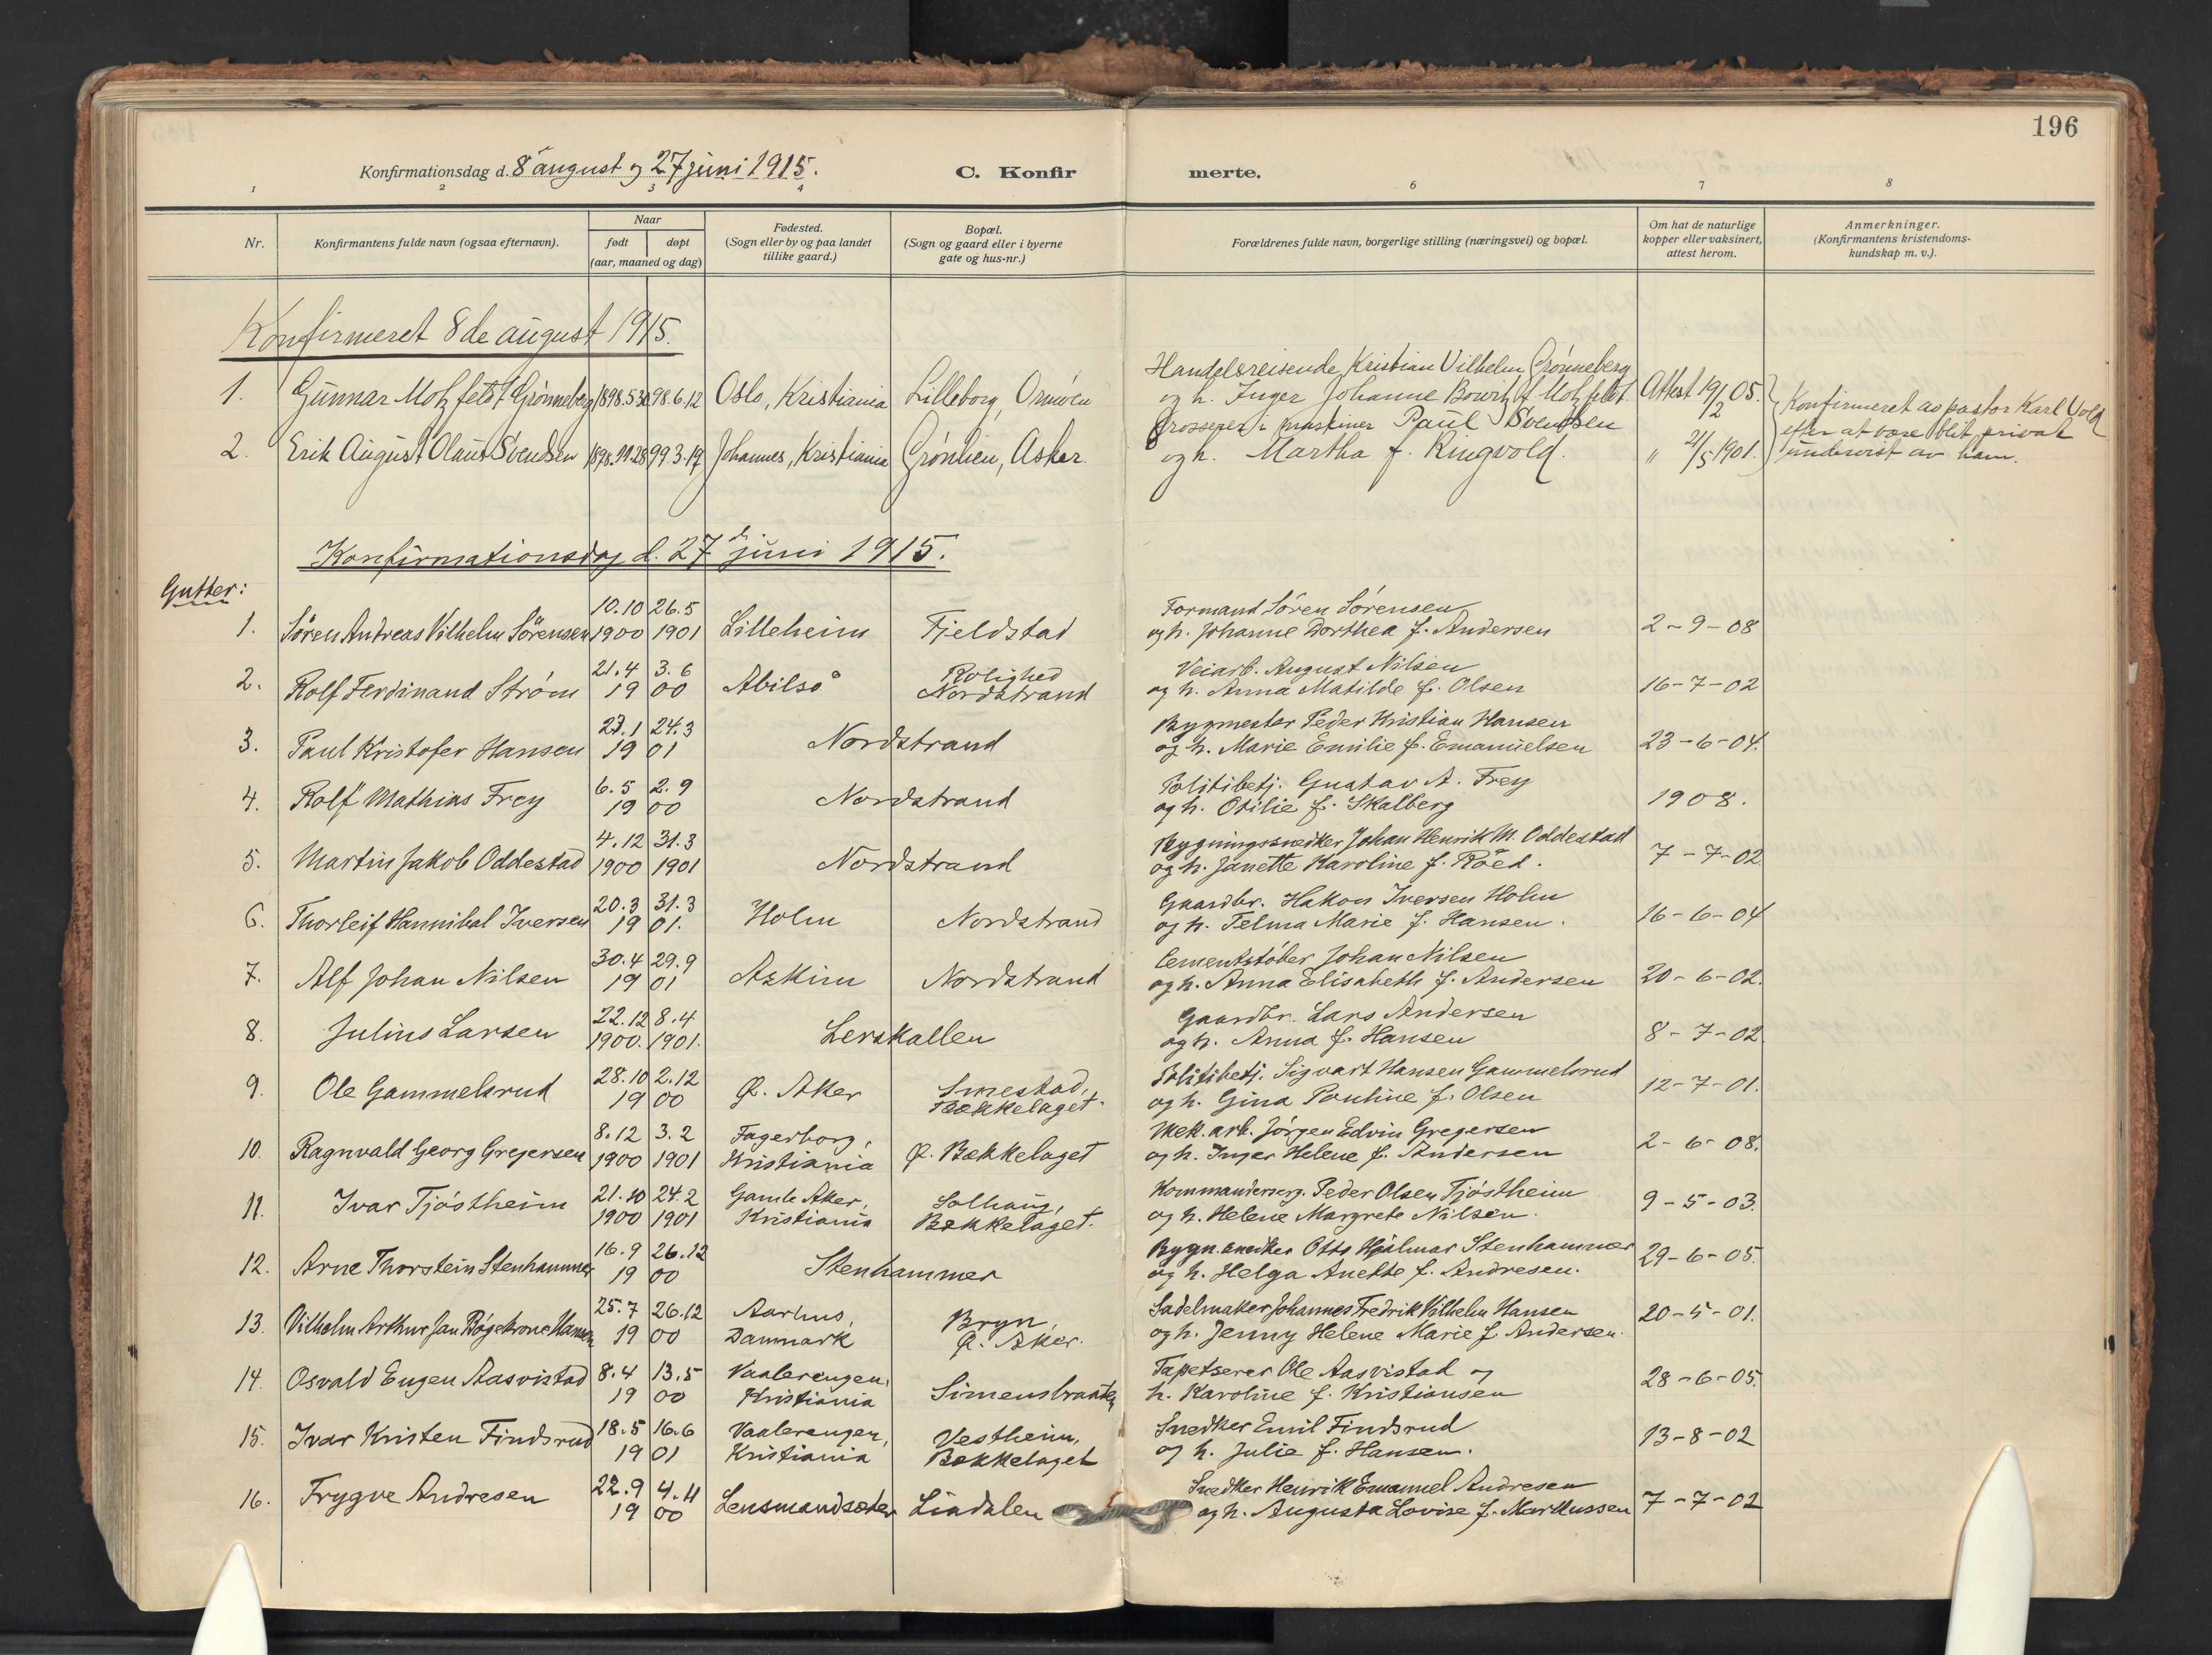 196
Konfirmationsdag d. 8 august og 27 juni 1915.
C. Konfir
merte.
1 2 3 4 6 7 8
Nr.
Konfirmantens fulde navn (ogsaa efternavn).
Naar
født døpt
(aar, maaned og dag)
Fødested.
(Sogn eller by og paa landet
tillike gaard.)
Bopæl.
(Sogn og gaard eller i byerne
gate og hus-nr.)
Forældrenes fulde navn, borgerlige stilling (næringsvei) og bopæl.
Om hat de naturlige
kopper eller vaksinert,
attest herom.
Anmerkninger.
(Konfirmantens kristendoms-
kundskap m. v.).
Konfirmeret 8de august 1915.
Handelsreisende Kristian Vilhelm Grønneberg
1. Gunnar Motzfeldt Grønneberg 1898.5.30 98.6.12 Oslo, Kristiania Lilleborg, Ormøen og h. Inger Johanne f. Motzfeldt. Attest 19/2 05.
Grosserer i maskiner Paul Svendsen
2. Erik August Olaus Svendsen 1898.11.28 99.3.19 Johannes, Kristiania Grønlien, Asker. og h. Martha f. Ringvold. " 21/5 1901.
Konfirmeret av pastor Karl Vold
efter at være blit privat
undervist av ham.
Konfirmationsdag d. 27de juni 1915.
Gutter:
10.10 26.5 Formand Søren Sørensen
1. Søren Andreas Vilhelm Sörensen 1900 1901 Lilleheim Fjeldstad og h. Johanne Dorthea f. Andersen 2-9-08
21.4 3.6 Rolighed Veiarb. August Nilsen
2. Rolf Ferdinand Strøm 19 00 Abilsø Nordstrand og h. Anna Matilde f. Olsen 16-7-02
27.1 24.3 Bygmester Peder Kristian Hansen
3. Paul Kristofer Hansen 19 01 Nordstrand og h. Marie Emilie f. Emanuelsen 23-6-04.
6.5 2.9 Politibetj. Gustav A. Frey
4. Rolf Mathias Frey 19 00 Nordstrand og h. Otilie f. Skalberg 1908.
4.12 31.3 Bygningssnedker Johan Henrik M. Oddestad
5. Martin Jakob Oddestad 1900 1901 Nordstrand og h. Janette Karoline f. Røed. 7-7-02
20.3 31.3 Gaardbr. Hakon Iversen Holm
6. Thorleif Hannibal Iversen 19 01. Holm Nordstrand og h. Telma Marie f. Hansen. 16-6-04
30.4 29.9 Cementstøber Johan Nilsen
7. Alf Johan Nilsen 19 01 Askim Nordstrand og h. Anna Elisabeth f. Andersen 20-6-02.
22.12 8.4 Gaardbr. Lars Andersen
8. Julius Larsen 1900. 1901. Lerskallen og h. Anna f. Hansen 8-7-02
28.10 2.12 Smestad, Politibetj. Sigvart Hansen Gammelsrud
9. Ole Gammelsrud 19 00 Ø. Aker Bækkelaget. og h. Gina Pauline f. Olsen 12-7-01.
8.12 3.2 Fagerborg, Mek. arb. Jørgen Edvin Gregersen
10. Ragnvald Georg Gregersen 1900 1901 Kristiania Ø. Bækkelaget og h. Inger Helene f. Andersen 2-6-08.
21.10 24.2 Gamle Aker, Solhaug, Kommanderserg. Peder Olsen Tjøstheim
11. Ivar Tjøstheim 1900 1901 Kristiania Bækkelaget. og h. Helene Margrete Nilsen. 9-5-03.
16.9 26.12 Bygn.snedker Otto Hjalmar Stenhammer
12. Arne Thorstein Stenhammer 19 00 Stenhammer og h. Helga Anette f. Andresen. 29-6-05.
25.7 26.12 Aarhus, Bryn, Sadelmaker Johannes Fredrik Vilhelm Hansen
13. Vilhelm Arthur Jan Hansen 19 00 Danmark Ø. Aker. og h. Jenny Helene Marie f. Andersen. 20-5-01.
8.4 13.5 Vaalerengen, Tapetserer Ole Aasvistad og
14. Osvald Eugen Aasvistad 19 00 Kristiania Simensbraaten h. Karoline f. Kristiansen 28-6-05.
18.5 16.6 Vaalerengen, Vestheim, Snedker Emil Findsrud
15. Ivar Kristen Findsrud 19 01 Kristiania Bækkelaget og h. Julie f. Hansen. 13-8-02
22.9 4.11 Snedker Henrik Emanuel Andresen
16. Trygve Andresen 19 00 Lensmandsæter Liadalen og h. Augusta Lovise f. Markussen 7-7-02